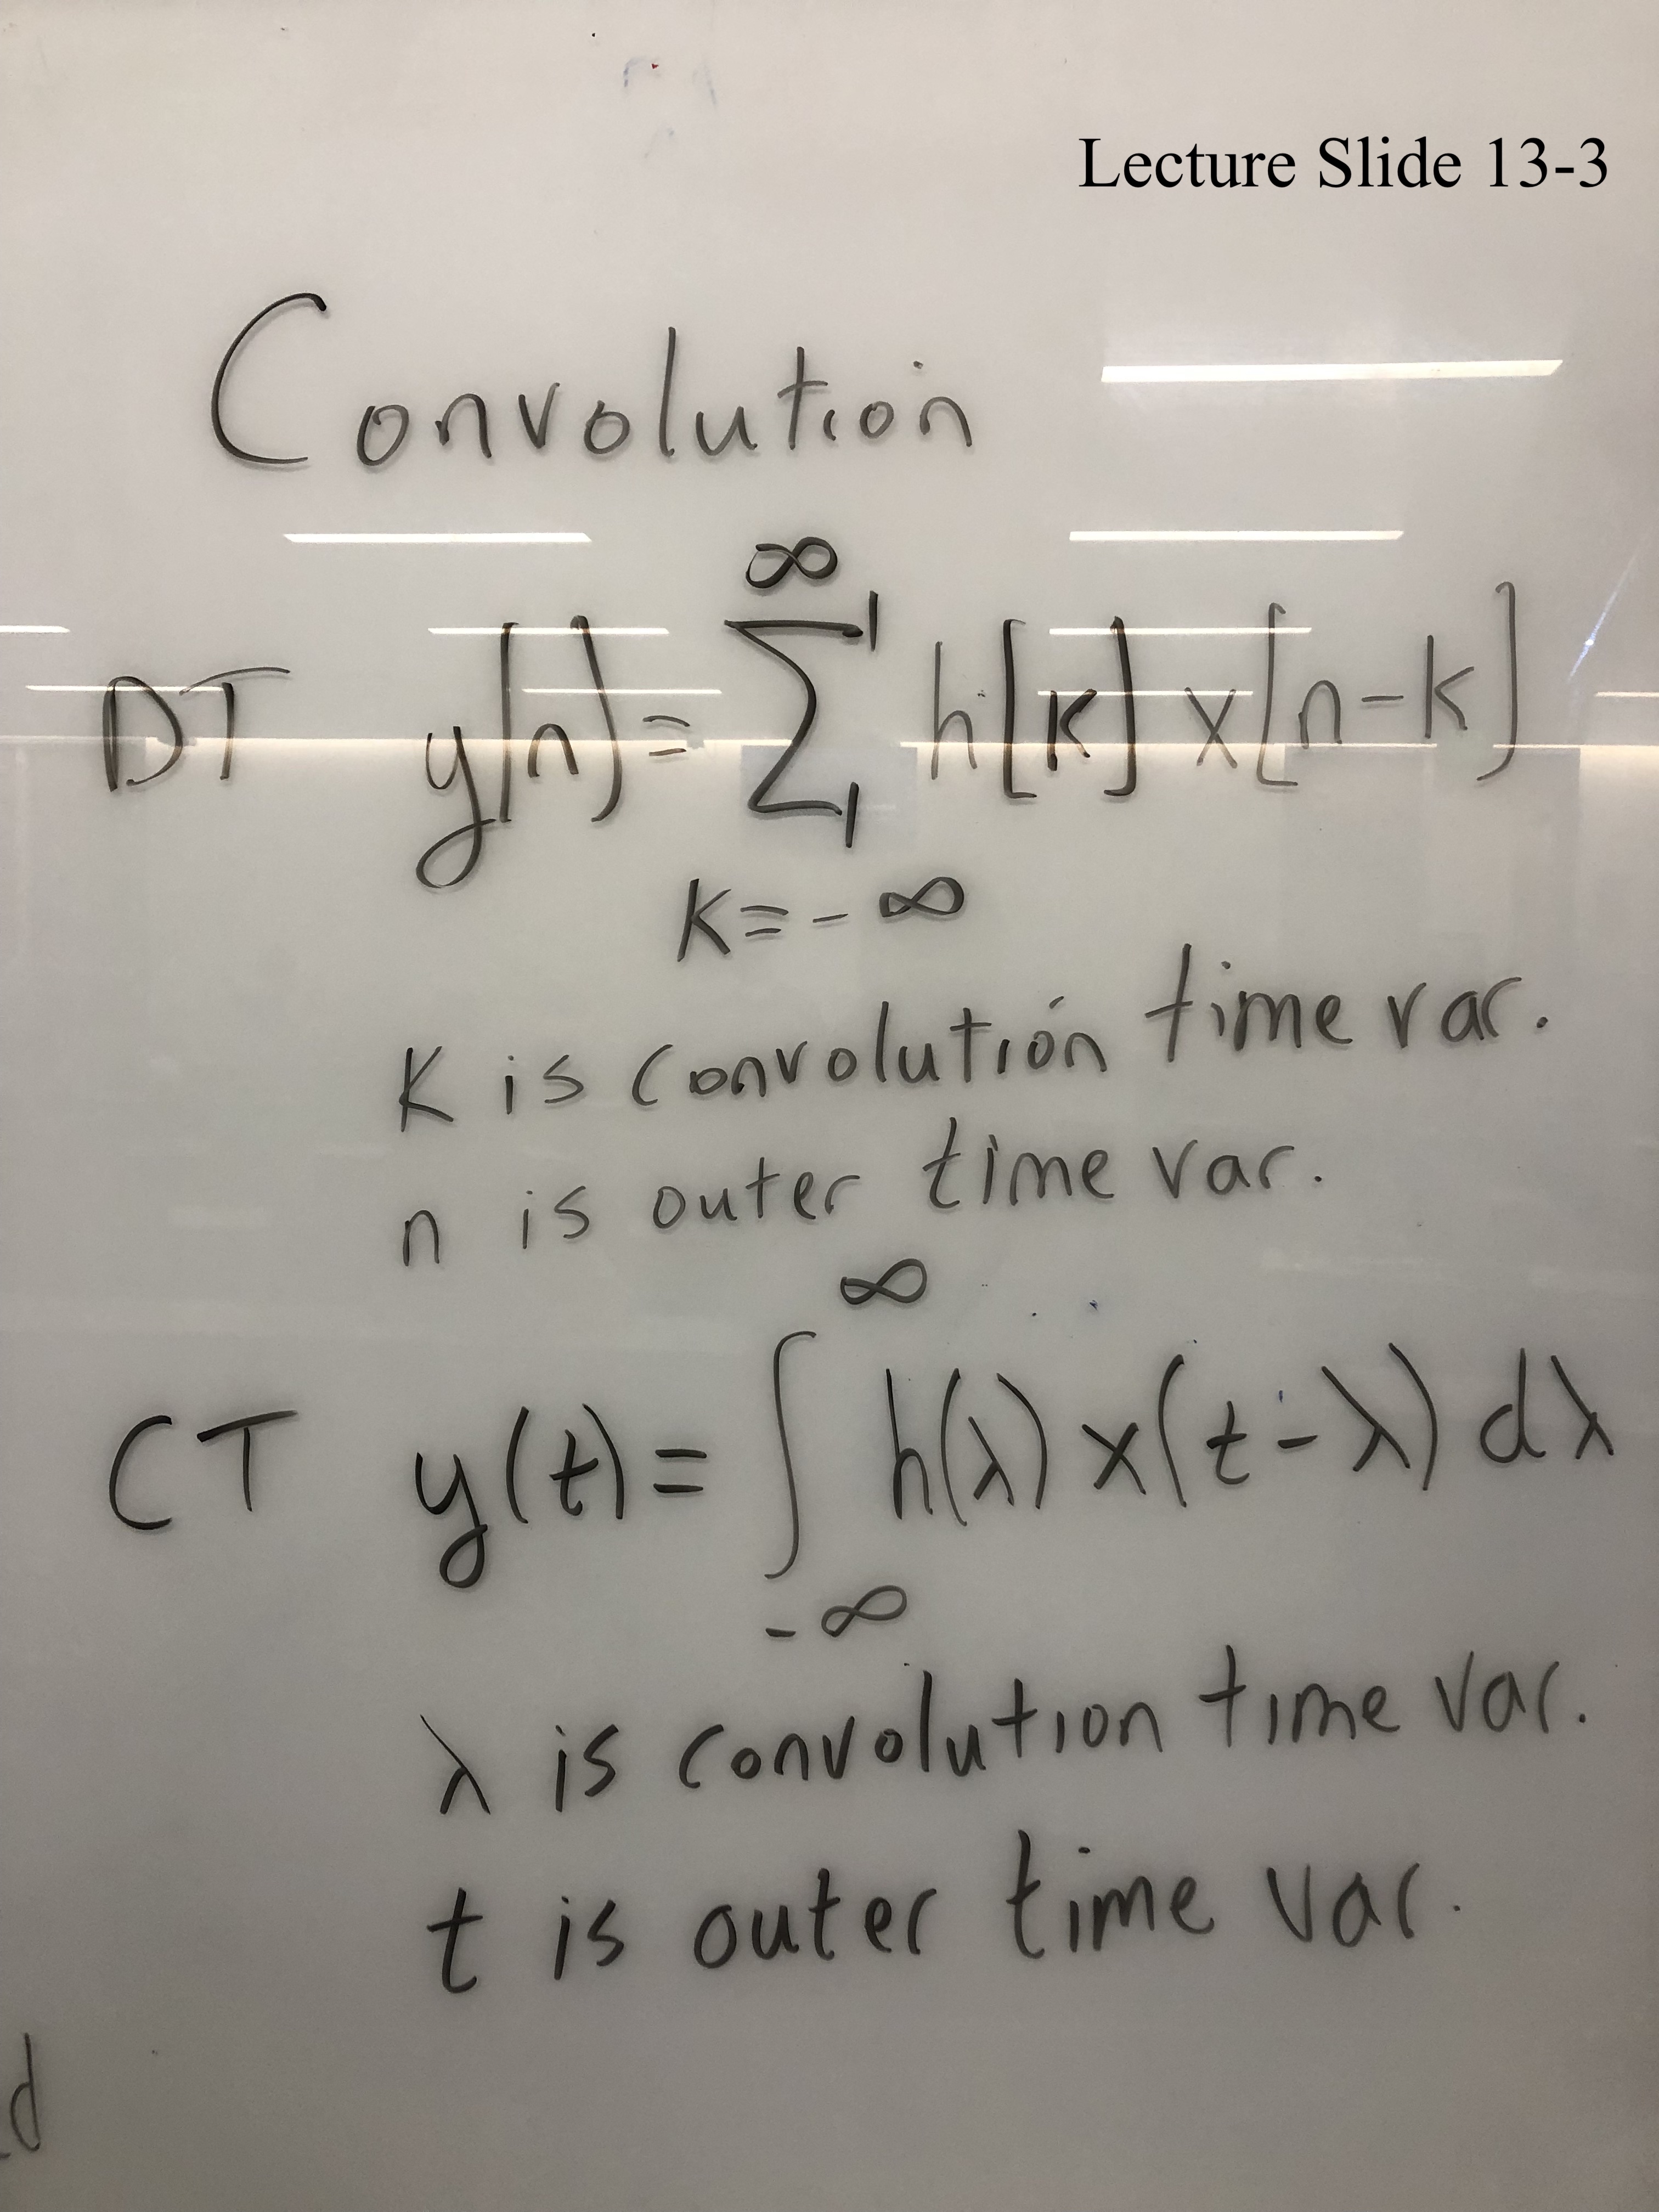 Lecture Slide 13-3
Convolution
∞
DT y[n] = ∑ h[k] x[n-k]
k=-∞
k is convolution time var.
n is outer time var.
∞
CT y(t) = ∫ h(λ) x(t-λ) dλ
-∞
λ is convolution time var.
t is outer time var.
d